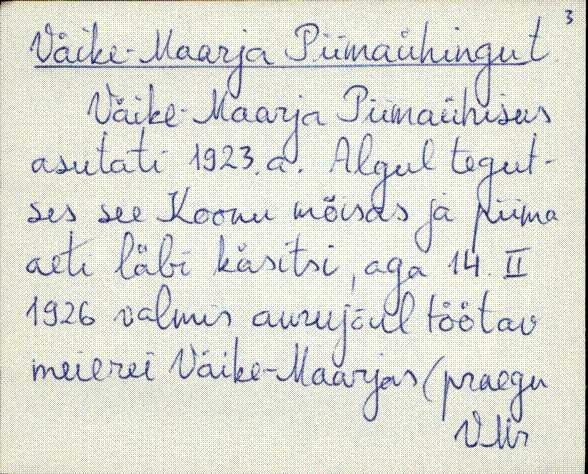 3
Väike-Maarja Piimaühingut
Väike-Maarja Piimaühisus
asutati 1923.a. Algul tegut-
ses see Koonu mõisas ja piima
aeti läbi käsitsi, aga 14. II
1926 valmis aurujõul töötav
meierei Väike-Maarjas (praegu